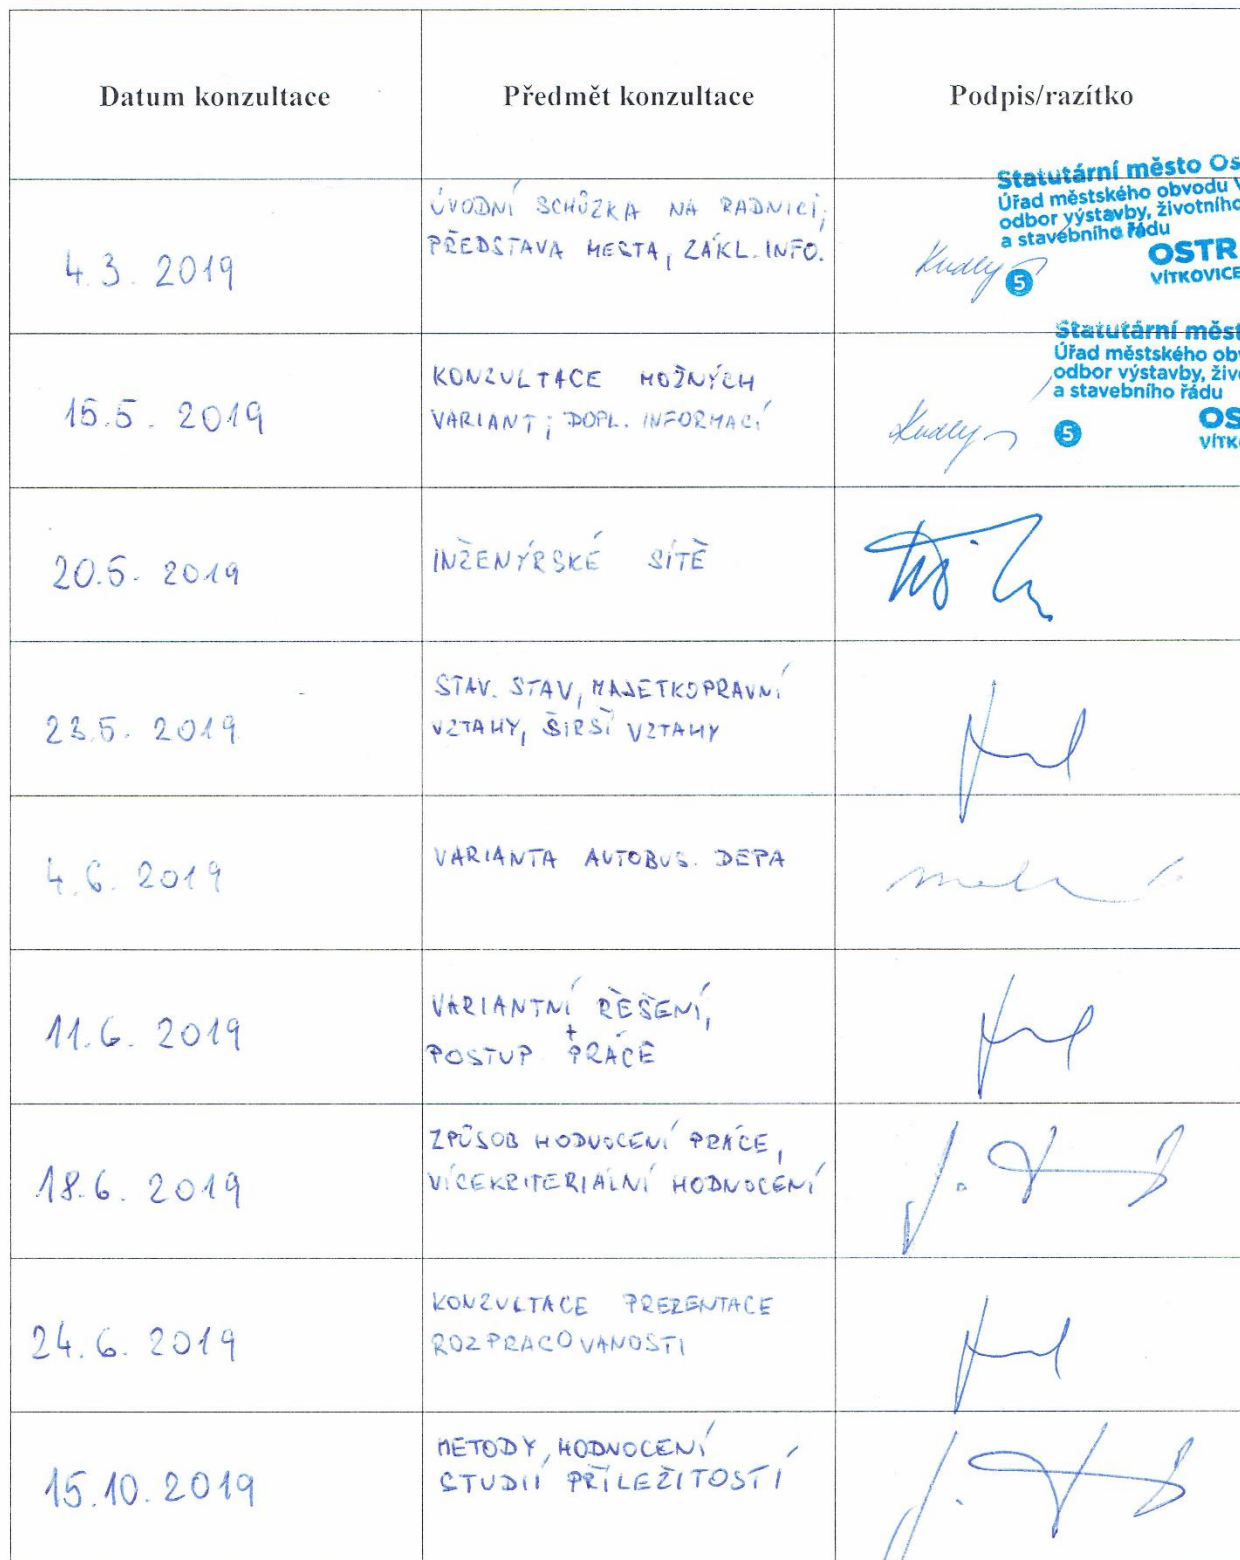 Datum konzultace
Předmět konzultace
Podpis/razítko
4.3. 2019
ÚVODNÍ SCHŮZKA NA RADNICI,
PŘEDSTAVA MESTA, ZÁKL. INFO.
Statutární město Os
Úřad městského obvodu V
odbor výstavby, životního
a stavebního řádu
OSTR
5
VÍTKOVICE
15.5. 2019
KONZULTACE MOŽNÝCH
VARIANT; DOPL. INFORMACÍ
Statutární měst
Úřad městského obv
odbor výstavby, živo
a stavebního řádu
OS
5
VÍTK
20.5. 2019
INŽENÝRSKÉ SÍTĚ
23.5. 2019
STAV. STAV, MAJETKOPRAVNÍ
VZTAHY, ŠIRSÍ VZTAHY
4.6. 2019
VARIANTA AUTOBUS. DEPA
11.6. 2019
VARIANTNÍ ŘEŠENÍ,
POSTUP + PRÁCE
18.6. 2019
ZPŮSOB HODNOCENÍ PRÁCE,
VÍCEKRITERIÁLNÍ HODNOCENÍ
24.6. 2019
KONZULTACE PREZENTACE
ROZPRACOVANOSTI
15.10.2019
METODY, HODNOCENÍ
STUDIÍ PŘÍLEŽITOSTÍ